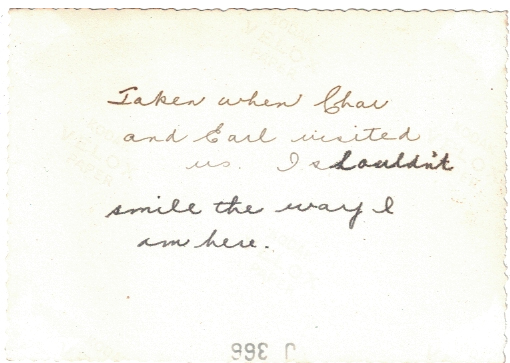 Taken when Char
and Earl visited
us. I shouldn't
smile the way I
am here.